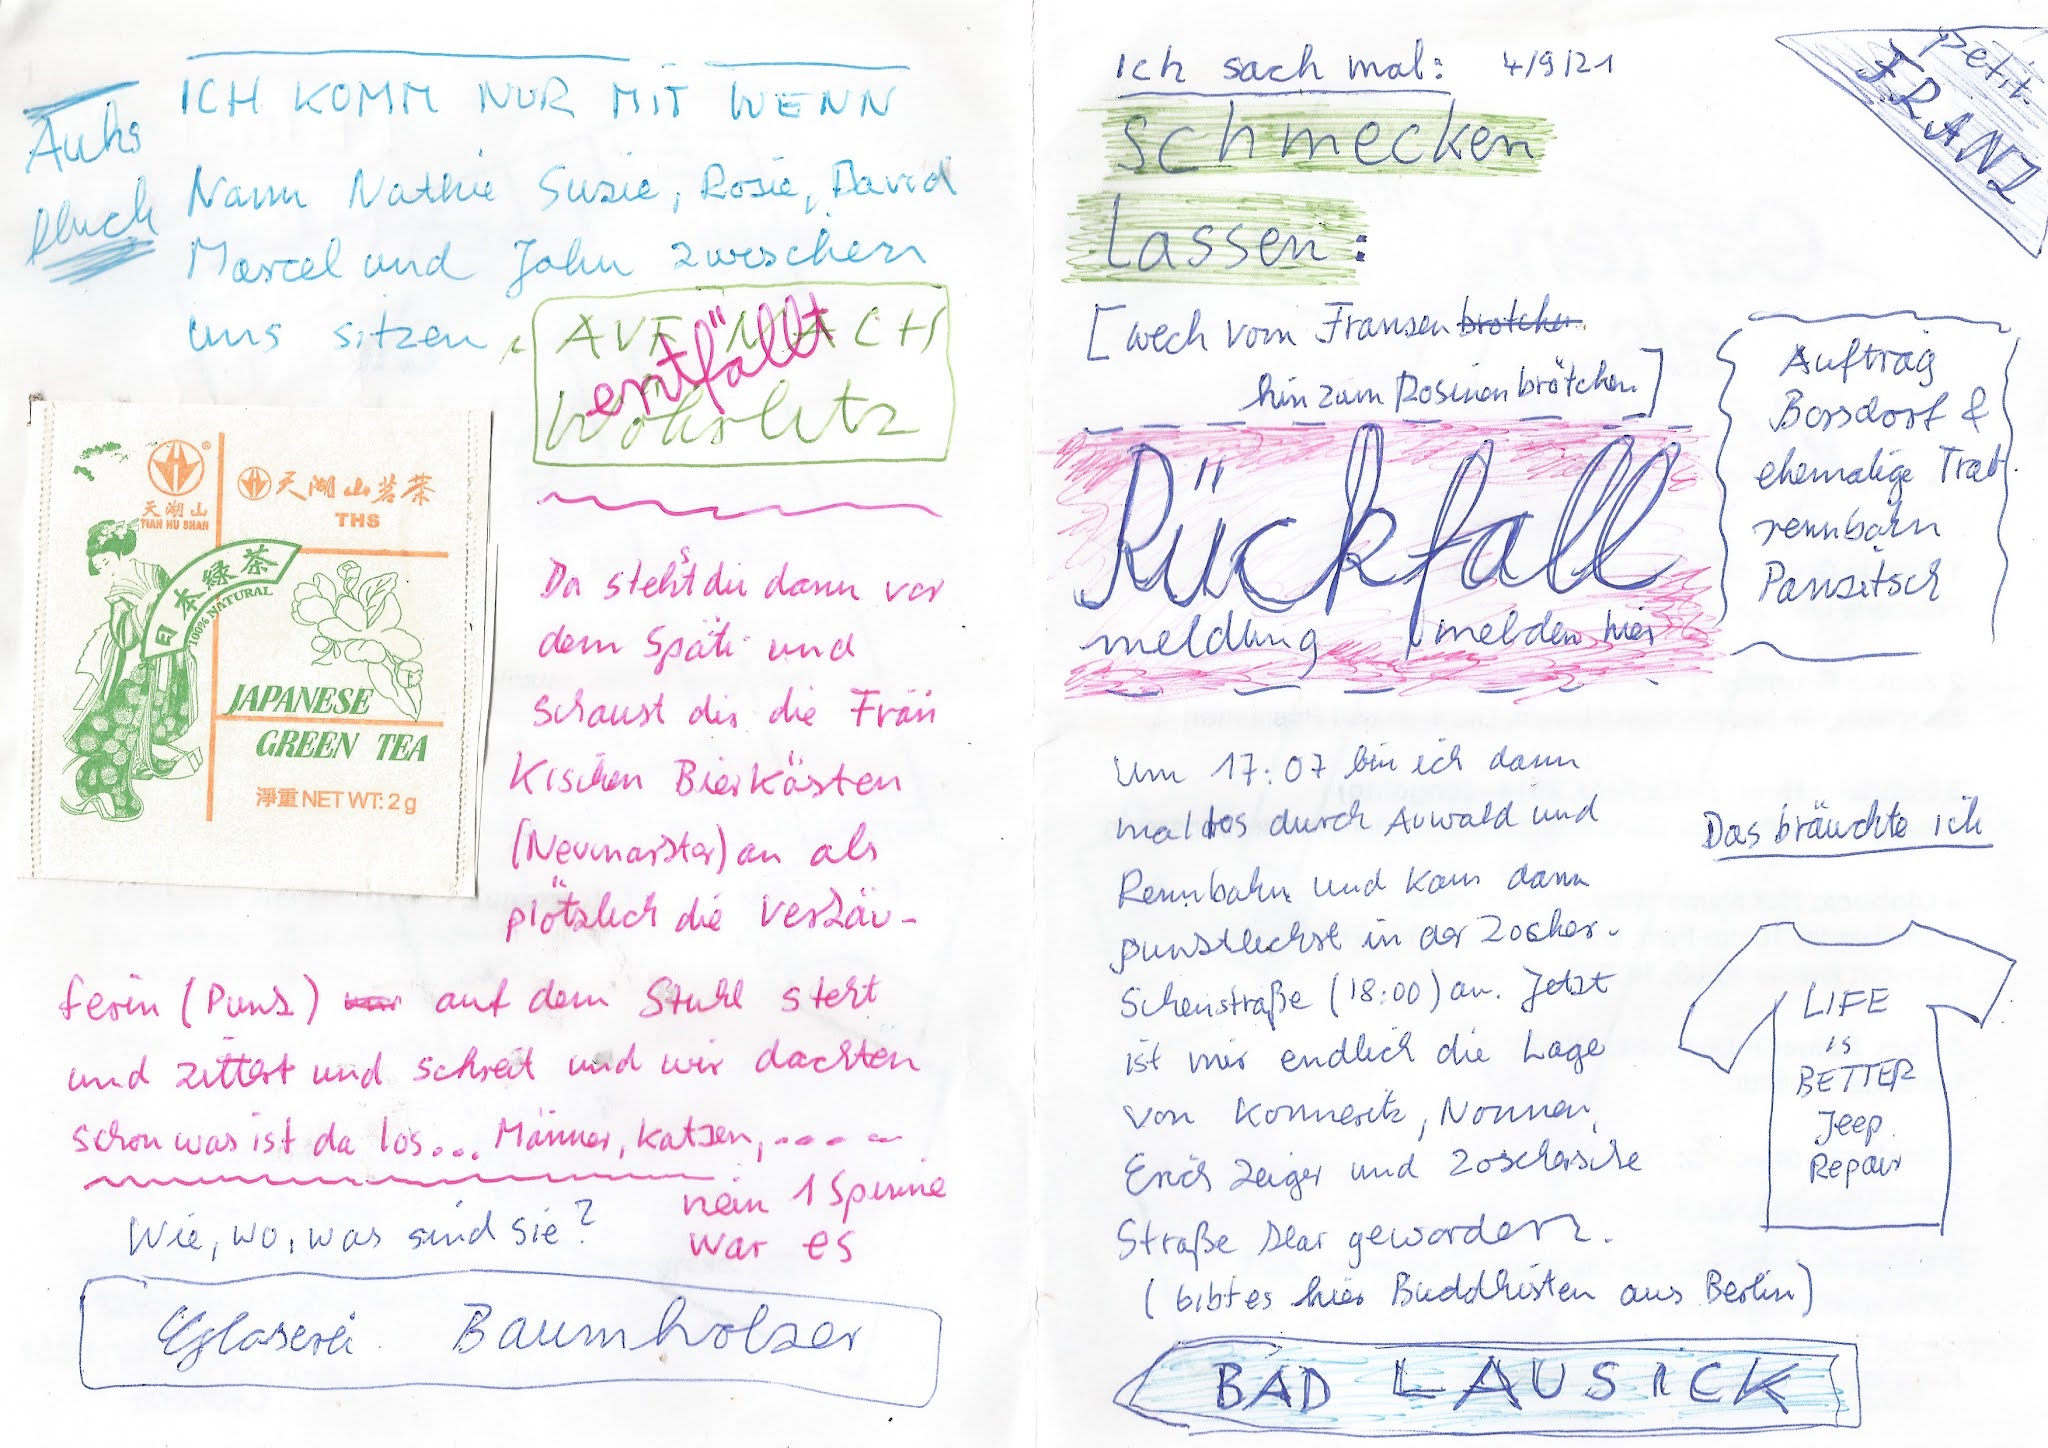 Auks
fluch
ICH KOMM NUR MIT WENN
Nann Nathie Susie, Rosie, David
Marcel und John zwischen
uns sitzen
AUF NACH
entfällt
Wöhrlitz
天湖山
TIAN HU SHAN
天湖山茗茶
THS
日本綠茶
100% NATURAL
JAPANESE
GREEN TEA
淨重 NET WT: 2 g
Da stehst du dann vor
dem Späti und
schaust dir die Frän
kischen Bierkästen
(Neumarkter) an als
plötzlich die Verkäu-
ferin (Punk) auf dem Stuhl steht
und zittert und schreit und wir dachten
schon was ist da los... Männer, Katzen, ----
nein 1 Spinne
war es
Wie, wo, was sind sie?
Eglaserei Baumholzer
ich sach mal: 4/9/21
petit.
FRANZ
schmecken
lassen:
[wech vom Fransen brötchen
hin zum Rosinenbrötchen]
Rückfall
meldung melden hier
Auftrag
Borsdorf &
ehemalige Trab.
rennbahn
Panzitsch
Um 17:07 bin ich dann
mal los durch Auwald und
Rennbahn und kam dann
punktlichst in der Zocher.
Schenstraße (18:00) an. Jetzt
ist mir endlich die Lage
von Konneritz, Nonnen,
Erich Zeiger und Zoschersche
Straße klar geworden.
(bibt es hier Buddhisten aus Berlin)
Das bräuchte ich
LIFE
is
BETTER
Jeep
Repair
BAD LAUSICK